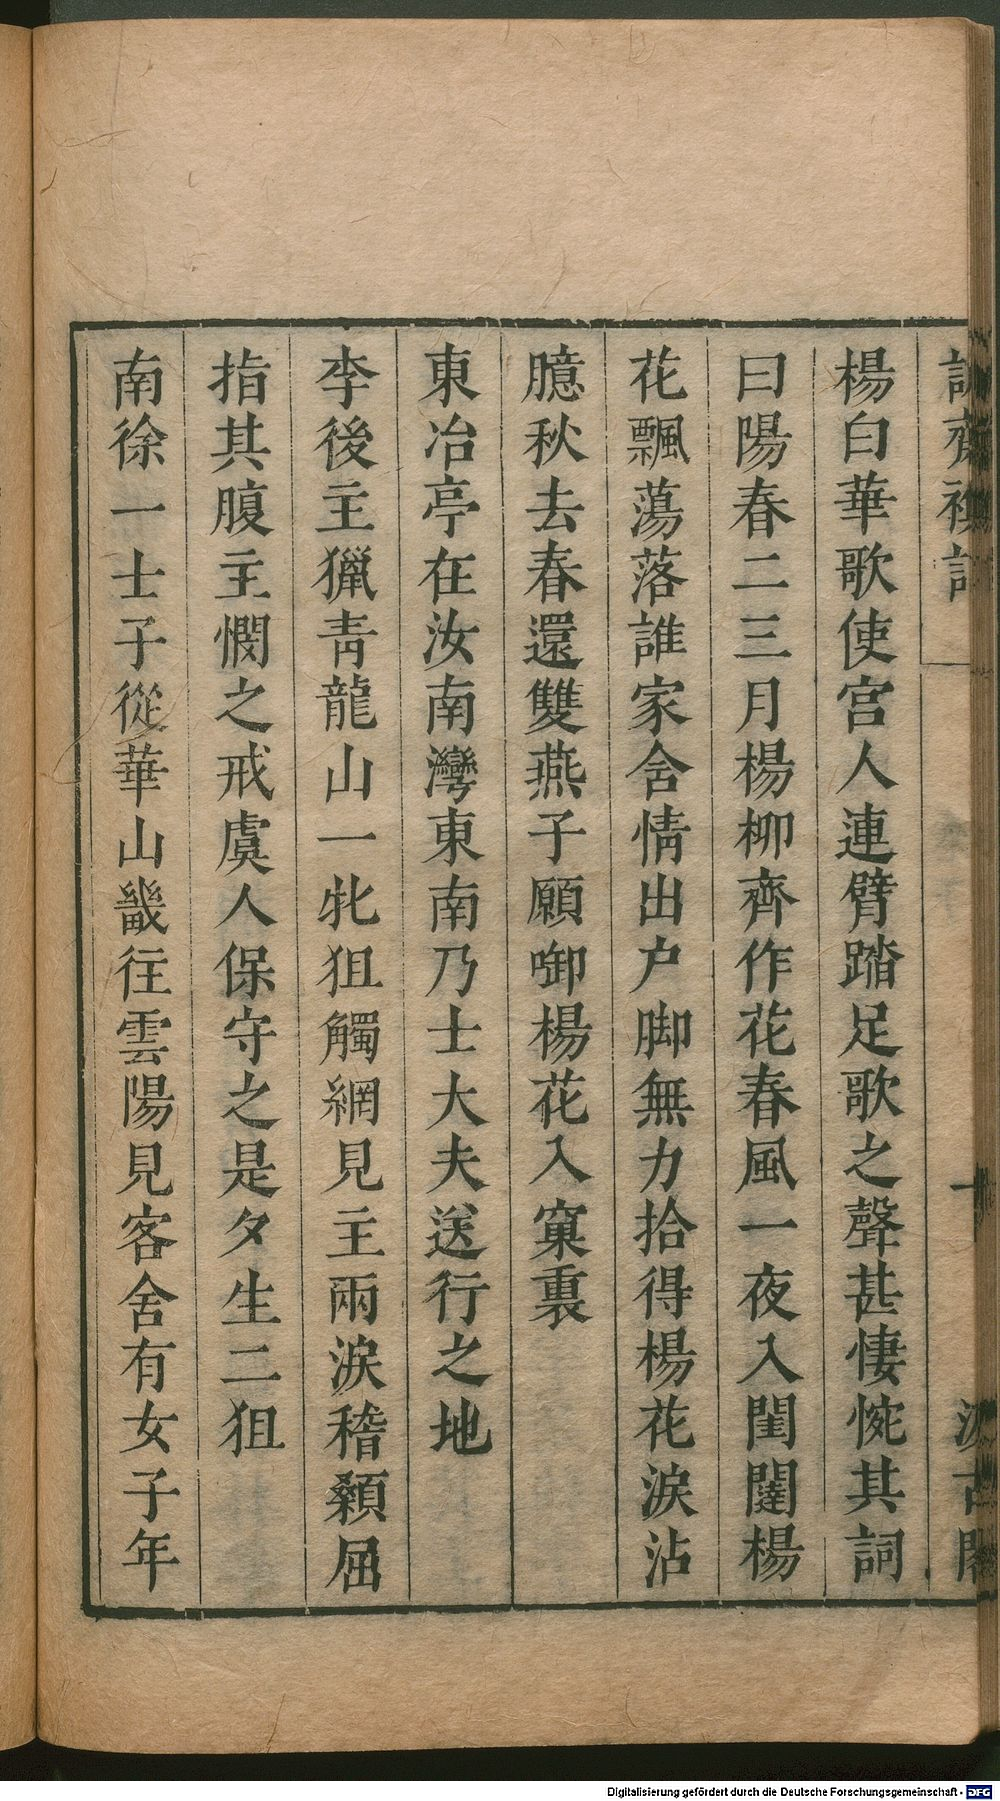 楊白華歌使宮人連臂踏足歌之聲甚悽惋其詞
曰陽春二三月楊柳齊作花春風一夜入閨闥楊
花飄蕩落誰家含情出户脚無力拾得楊花淚沾
臆秋去春還雙燕子願啣楊花入窠裏
東冶亭在汝南灣東南乃士大夫送行之地
李後主獵青龍山一牝狙觸網見主兩淚稽顙屈
指其腹主憫之戒虞人保守之是夕生二狙
南徐一士子從華山畿往雲陽見客舍有女子年
Digitalisierung gefördert durch die Deutsche Forschungsgemeinschaft - DFG